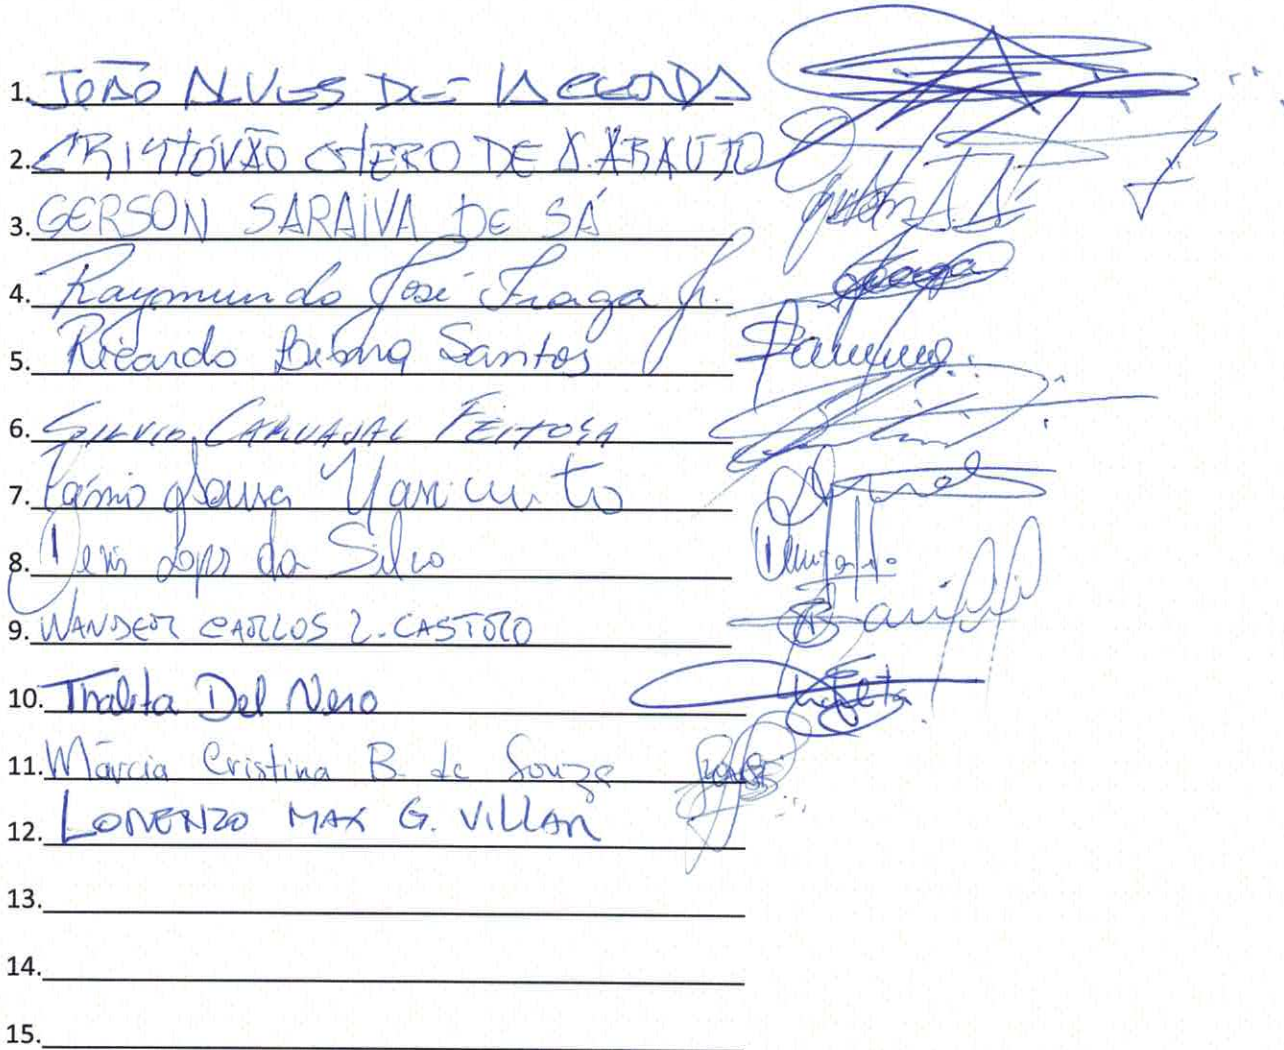 1. JOÃO ALVES DE LACERDA
2. CRISTOVÃO CÍCERO DE A. ARAUJO
3. GERSON SARAIVA DE SÁ
4. Raymundo José Fraga Jr.
5. Ricardo Santos
6. SILVIO CARVAJAL FEITOSA
7. Souza
8. Denis Lopes da Silva
9. WANDER CARLOS L. CASTRO
10. Thalita Del Nero Thalita
11. Márcia Cristina B. de Souza
12. LORENZO MAX G. VILLAR
13.
14.
15.